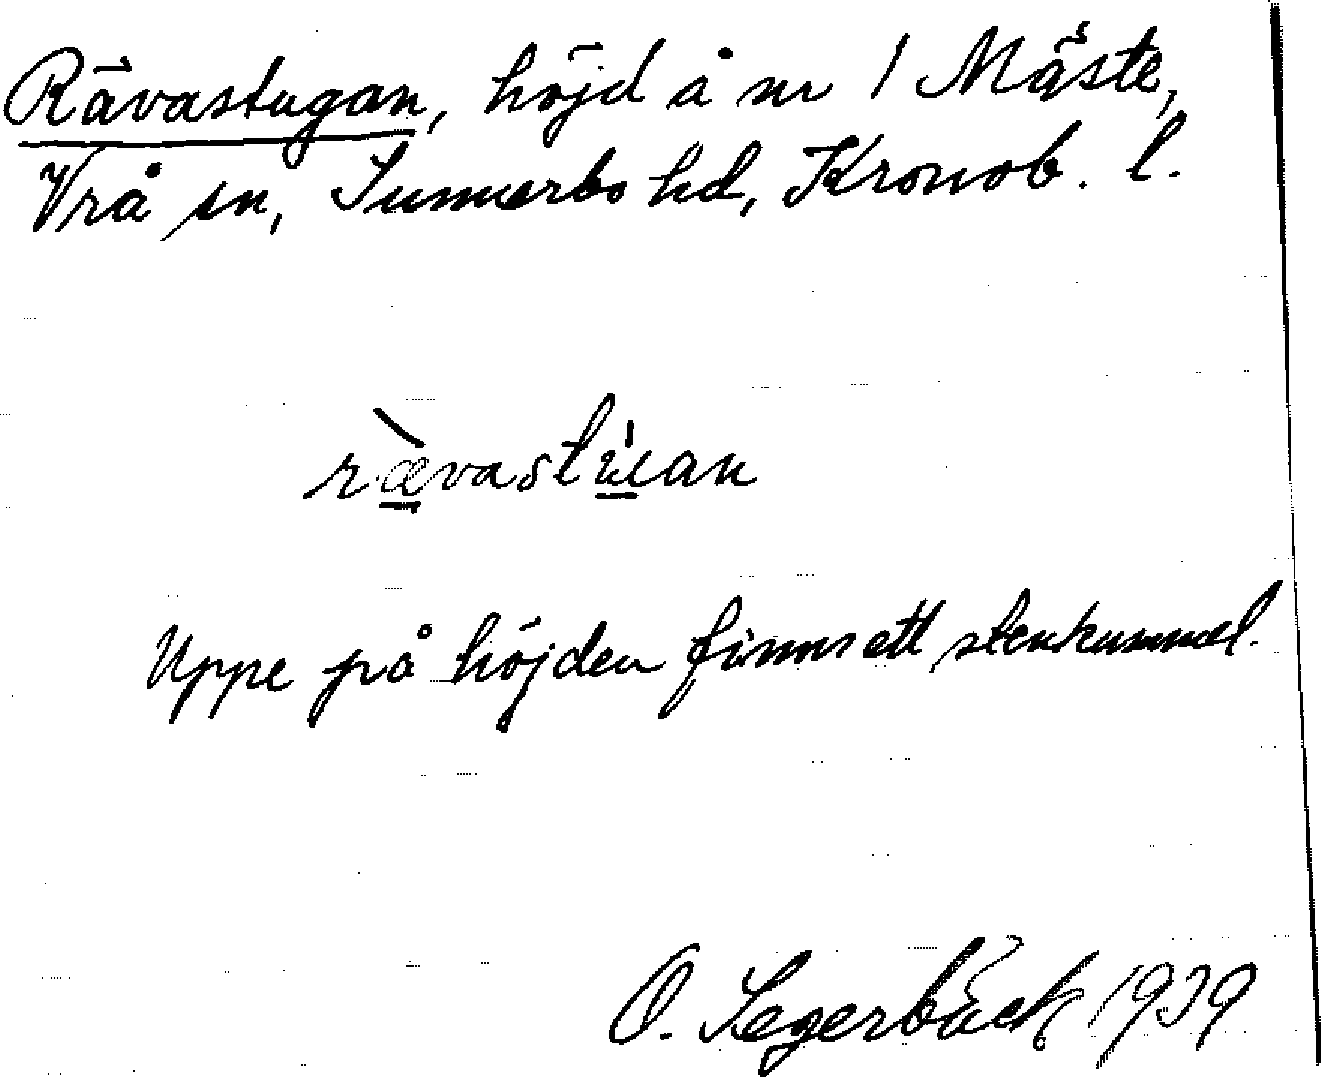 Rävastugan, höjd å nr 1 Mäste,
Vrå sn, Sunnerbo hd, Kronob. l.
ræ̀vastúan
Uppe på höjden finns ett stenkummel.
O. Segerbäck 1939